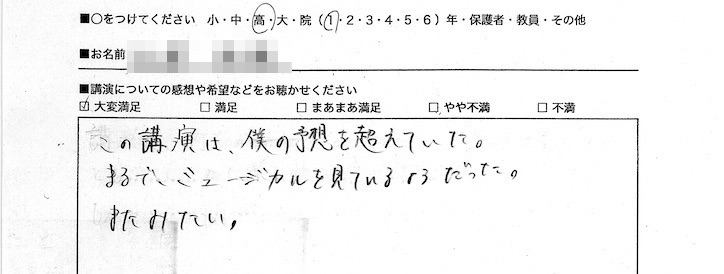 ■○をつけてください 小・中・高・大・院（1・2・3・4・5・6）年・保護者・教員・その他
■お名前
■講演についての感想や希望などをお聴かせください
☑ 大変満足 □ 満足 □ まあまあ満足 □ やや不満 □ 不満
この講演は、僕の予想を超えていた。
まるで、ミュージカルを見ているようだった。
またみたい。